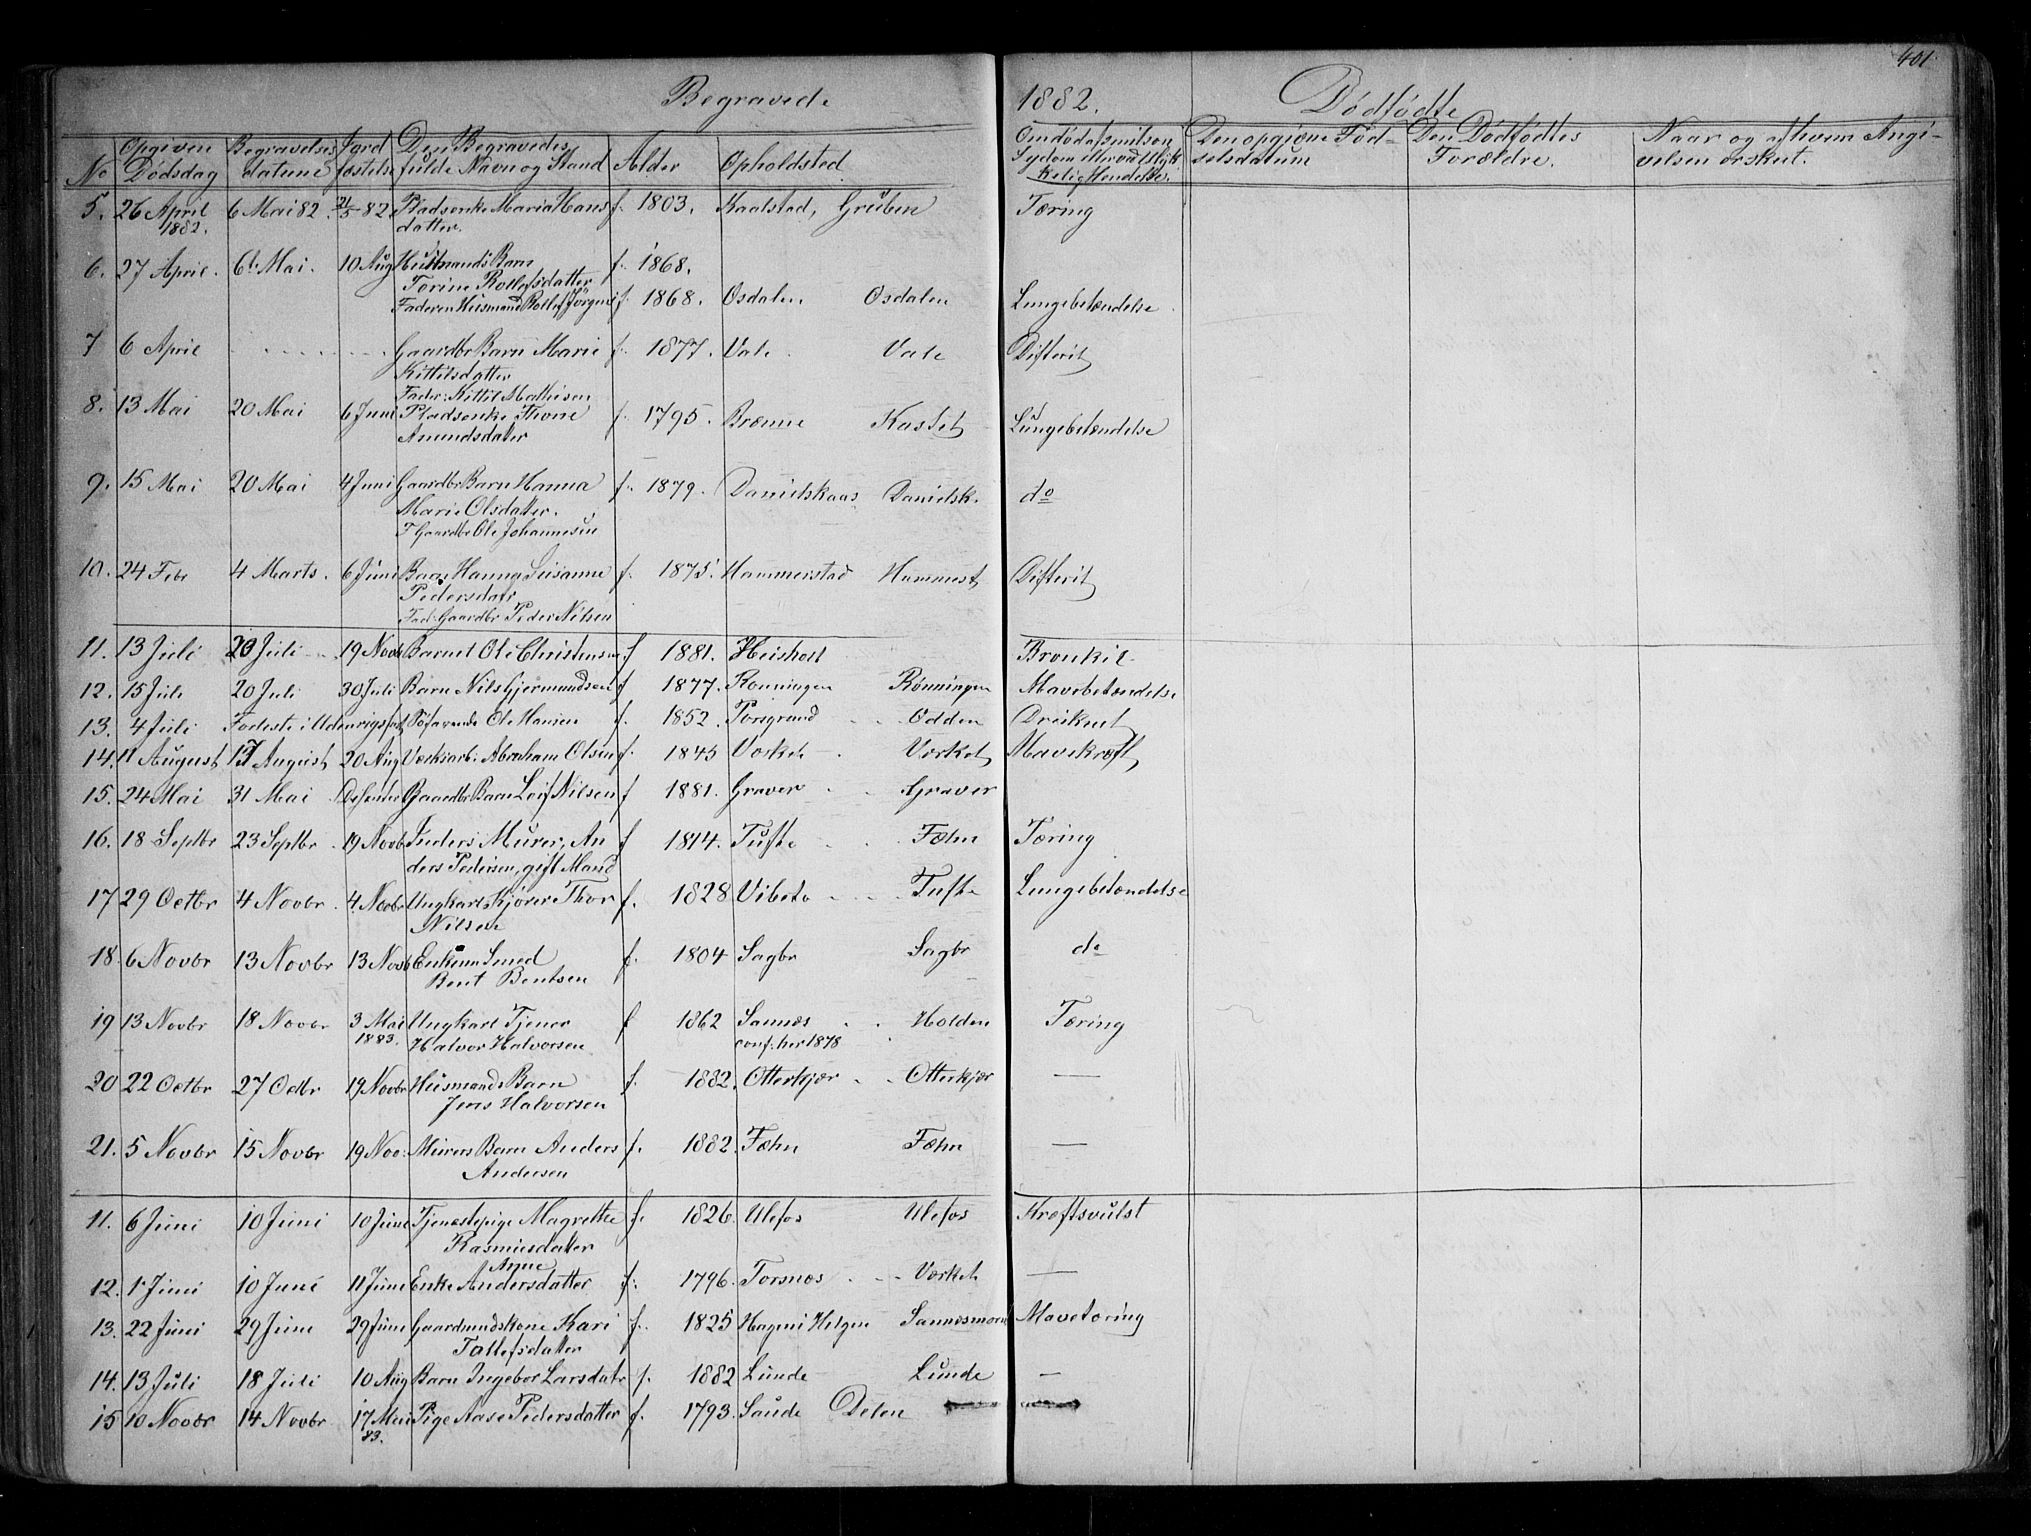 401
Begravede 1882. Dødfødte
No Opgiven Dødsdag Begravelses datum Jord fæstelse Den Begravedes fulde Navn og Stand Alder Opholdsted Om død af smitsom Sygdom eller ved Ulykkelig Hendelse. Den opgivne Fødselsdatum Den Dødfødtes Forældre. Naar og af hvem Angivelsen er skeet.
5. 26 April 6 Mai 82. 21/5 82 Pladsenke Maria Hans f. 1803. Kaalstad, Gruben Tæring
1882. datter.
6. 27 April. 6 Mai. 10 Aug Husmands Barn f. 1868.
Torine Rollefsdatter
Faderen Husmand Rollef Jørgens f. 1868. Osdalen Osdalen Lungebetændelse
7 6 April Gaardbr Barn Marie f. 1877. Vale Vale Difterit
Kittilsdatter
Fader: Kittil Mathisen
8. 13 Mai 20 Mai 6 Juni Pladsenke Thone f. 1795. Brænne Kastet Lungebetændelse
Amundsdater
9. 15 Mai 20 Mai 4 Juni Gaardbr Barn Hanna f. 1879. Danielskaas Danielsk. do
Marie Olsdatter.
F Gaardbr Ole Johannesen
10. 24 Febr 4 Marts. 6 Juni Barn Hanna Susanne f. 1875. Hammerstad Hammerst Difterit
Pedersdatr
Fad: Gaardbr Peder Nilsen
11. 13 Juli 20 Juli 19 Novb Barnet Ole Christensen f 1881. Heisholt Bronkit
12. 15 Juli 20 Juli 30 Juli Barn Nils Gjermundsen f 1877. Rønningen Rønningen Mavebetændelse
13. 4 Juli Jordeste i Udenrigs Søfarende Ole Hansen f. 1852. Porsgrund Odden Druknet
14. 11 August 17 August 20 Aug Værksarb. Abraham Olsen f. 1845 Værket Værket Mavekræft
15. 24 Mai 31 Mai Gaardbr Barn Leif Nilsen f 1881. Graver Graver
16. 18 Septbr 23 Septbr 19 Novbr Inders Murer, An f 1814. Tufte Fæhn Tæring
ders Pedersen, gift Mand
17 29 Octbr 4 Novbr. 4 Novbr Ungkarl Skjører Thor f. 1828 Vibeto Tufte Lungebetændelse
Nilsen
18. 6 Novbr 13 Novbr 13 Novb Enkem Smed f. 1804 Sagbr Sagbr do
Bent Bentsen
19 13 Novbr 18 Novbr 3 Mai Ungkarl Tjener f 1862 Sannæs Holden Tæring
1883. Halvor Halvorsen conf. her 1878
20 22 Octbr 27 Octbr 19 Novbr Husmands Barn f. 1882. Otterkjær Otterkjær —
Jens Halvorsen
21. 5 Novbr 15 Novbr 19 Nov. Murers Barn Anders f. 1882. Fæhn Fæhn —
Andersen
11. 6 Juni 10 Juni 10 Juni Tjenestepige Magrethe f. 1826. Ulefos Ulefos Kræftsvulst
Rasmusdatter
Anne
12. 1 Juni 10 Juni 11 Juni Enke Andersdatter f. 1796. Torsnæs Værket —
13. 22 Juni 29 Juni 29 Juni Gaardmandskone Kari f. 1825 Hagen i Helgen Sannesmoen Mavetæring
Tallefsdatter
14. 13 Juli 18 Juli 10 Aug Barn Ingebor Larsdatr f. 1882 Lunde Lunde —
15 10 Novbr 14 Novbr 17 Mai Pige Aase Pedersdatter f. 1793. Saude Delen
83.